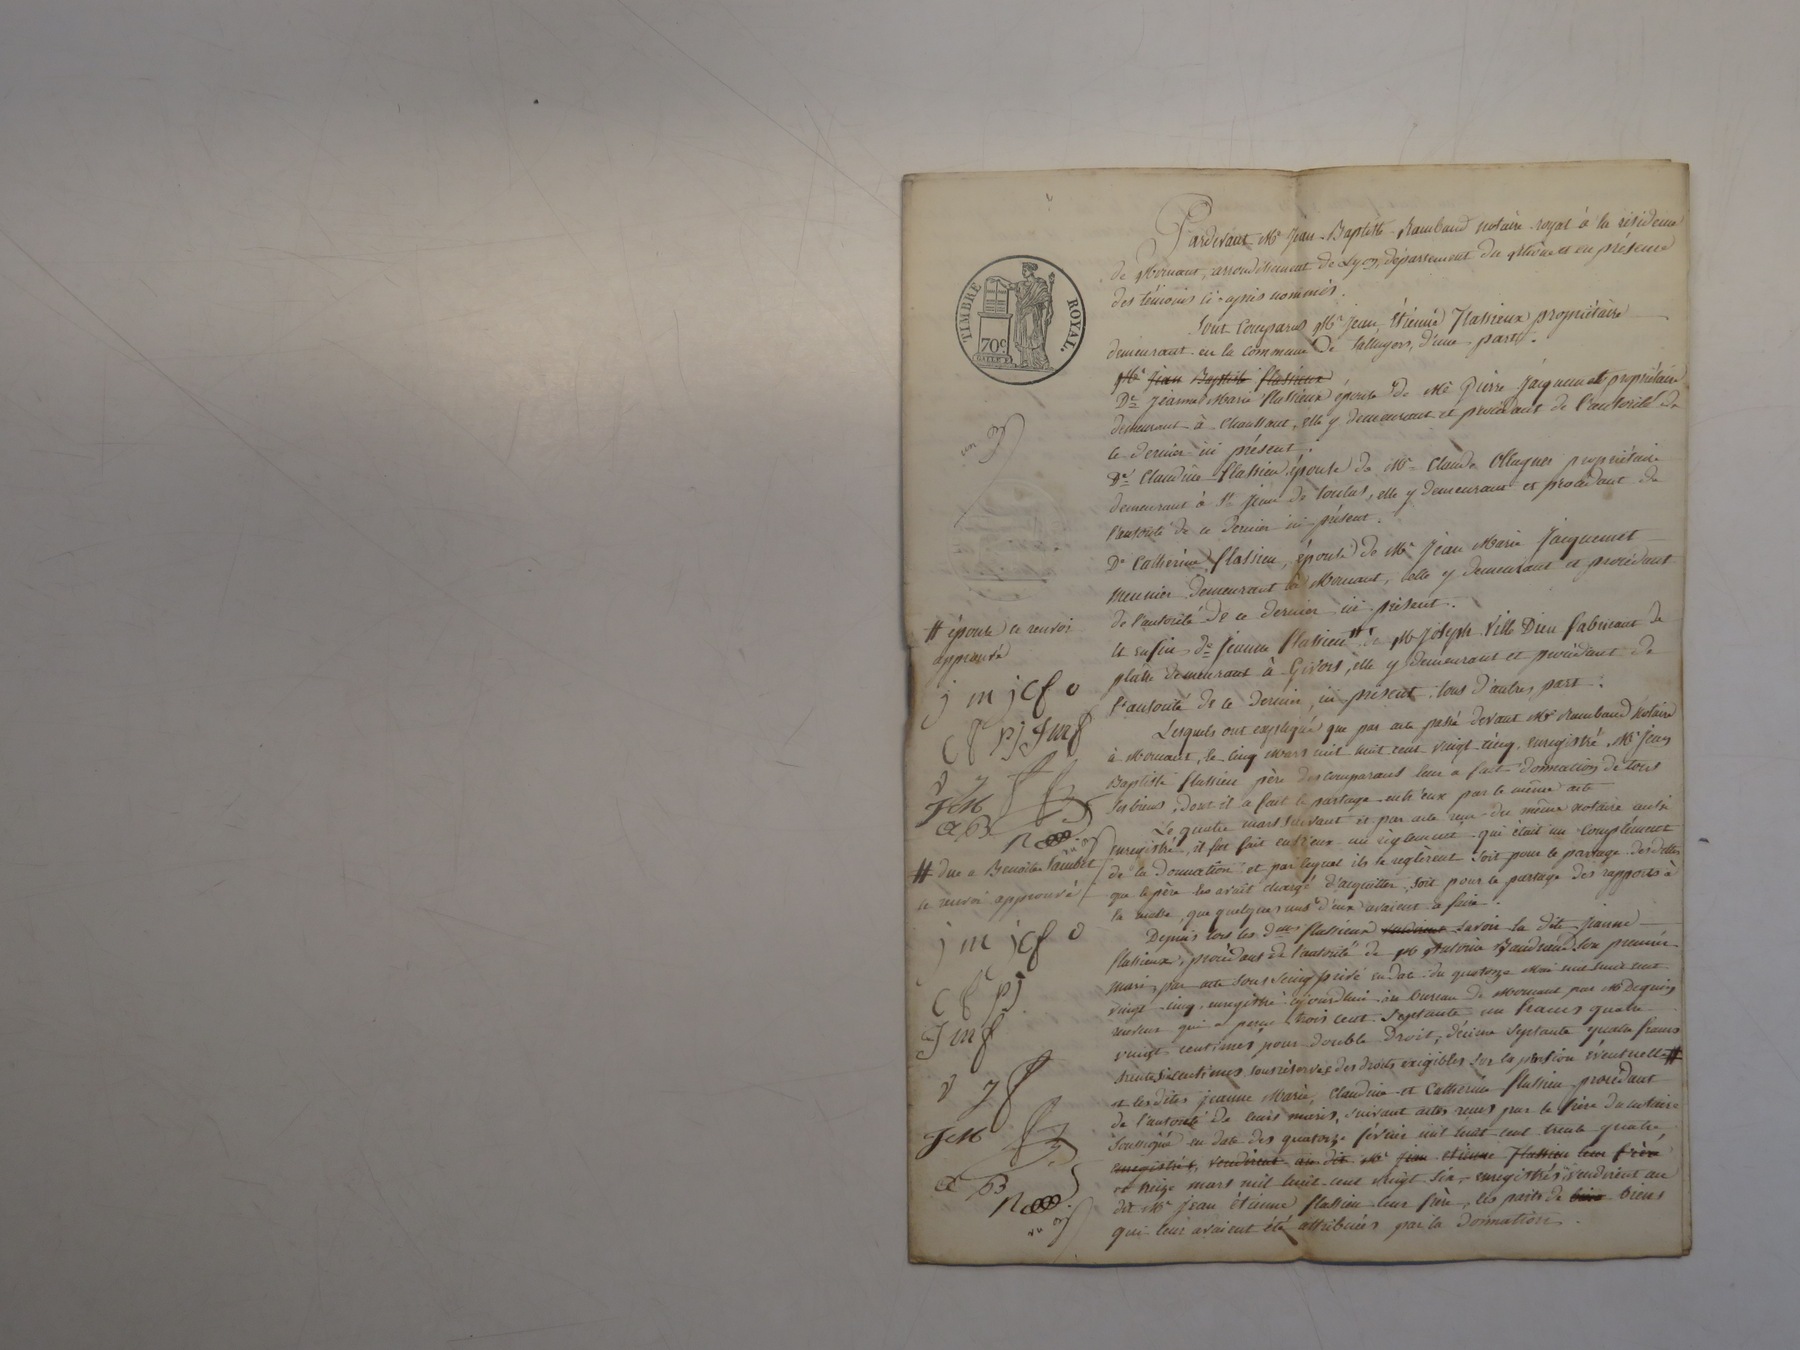 TIMBRE ROYAL.
70c
Pardevant Me Jean-Baptiste Rambaud notaire royal à la résidence
de Mornant, arrondissement de Lyon, département du Rhône et en présence
des témoins ci-après nommés.
Sont comparus Mr Jean Étienne Flassieux propriétaire
demeurant en la commune de Talluyers, d'une part.
Mr Jean Baptiste Flassieux
De Jeanne Marie Flassieux épouse de Me Pierre Jacquemet propriétaire
demeurant à Chaussant, elle y demeurant et procédant de l'autorité de
ce dernier ici présent.
De Claudine Flassieu épouse de Mr Claude Ollagnier propriétaire
demeurant à St Jean de Toulas, elle y demeurant et procédant de
l'autorité de ce dernier ici présent.
De Catherine Flassieu, épouse de Mr Jean Marie Jacquemet
meunier demeurant à Mornant, elle y demeurant et procédant
de l'autorité de ce dernier ici présent.
et enfin De Jeanne Flassieu # de Mr Joseph Ville Dieu fabricant de
plâtre demeurant à Givors, elle y demeurant et procédant de
l'autorité de ce dernier, ici présent. tous d'autres part.
# épouse ce renvoi
approuvé
j m j c f o
Lesquels ont expliqué que par acte passé devant Me Rambaud Notaire
à Mornant, le cinq mars mil huit cent vingt cinq, enregistré, Mr Jean
Baptiste Flassieu père des comparans leur a fait donnation de tous
ses biens, dont il a fait le partage entr'eux par le même acte
Le quatre mars suivant et par acte reçu du même notaire aussi
enregistré, il fut fait entr'eux un règlement qui était un complément
de la donnation et par lequel ils se reglèrent soit pour le partage des dettes
que le père les avait chargé d'acquitter, soit pour le partage des rapports à
la masse, que quelques uns d'eux avaient à faire.
J C M
# due a Benoite
ce renvoi approuvé
j m j c f o
Depuis lors les dmes Flassieux vendirent savoir la dite Jeanne
Flassieux, procédant de l'autorité de Mr Antoine son premier
mari, par acte sous seing privé en date du quatorze Mai mil huit cent
vingt cinq, enregistré aujourdhui au bureau de Mornant par Mr
receveur qui a perçu trois cent septante un francs quatre
vingt centimes pour double droit, décime septante quatre francs
centimes sous réserve des droits exigibles sur la portion éventuelle #
et les dites Jeanne Marie, Claudine et Catherine Flassieu procédant
de l'autorité de leurs maris, suivant actes reçus par le père du notaire
soussigné en date des quatorze février mil huit cent trente quatre
enregistrés, vendirent au dit Mr Jean Etienne Flassieu leur frère
et treize mars mil huit cent vingt six, enregistrés, vendirent au
dit Mr Jean Étienne Flassieu leur frère, les parts de biens biens
qui leur avaient été attribuées par la donnation.
J m f
J C M